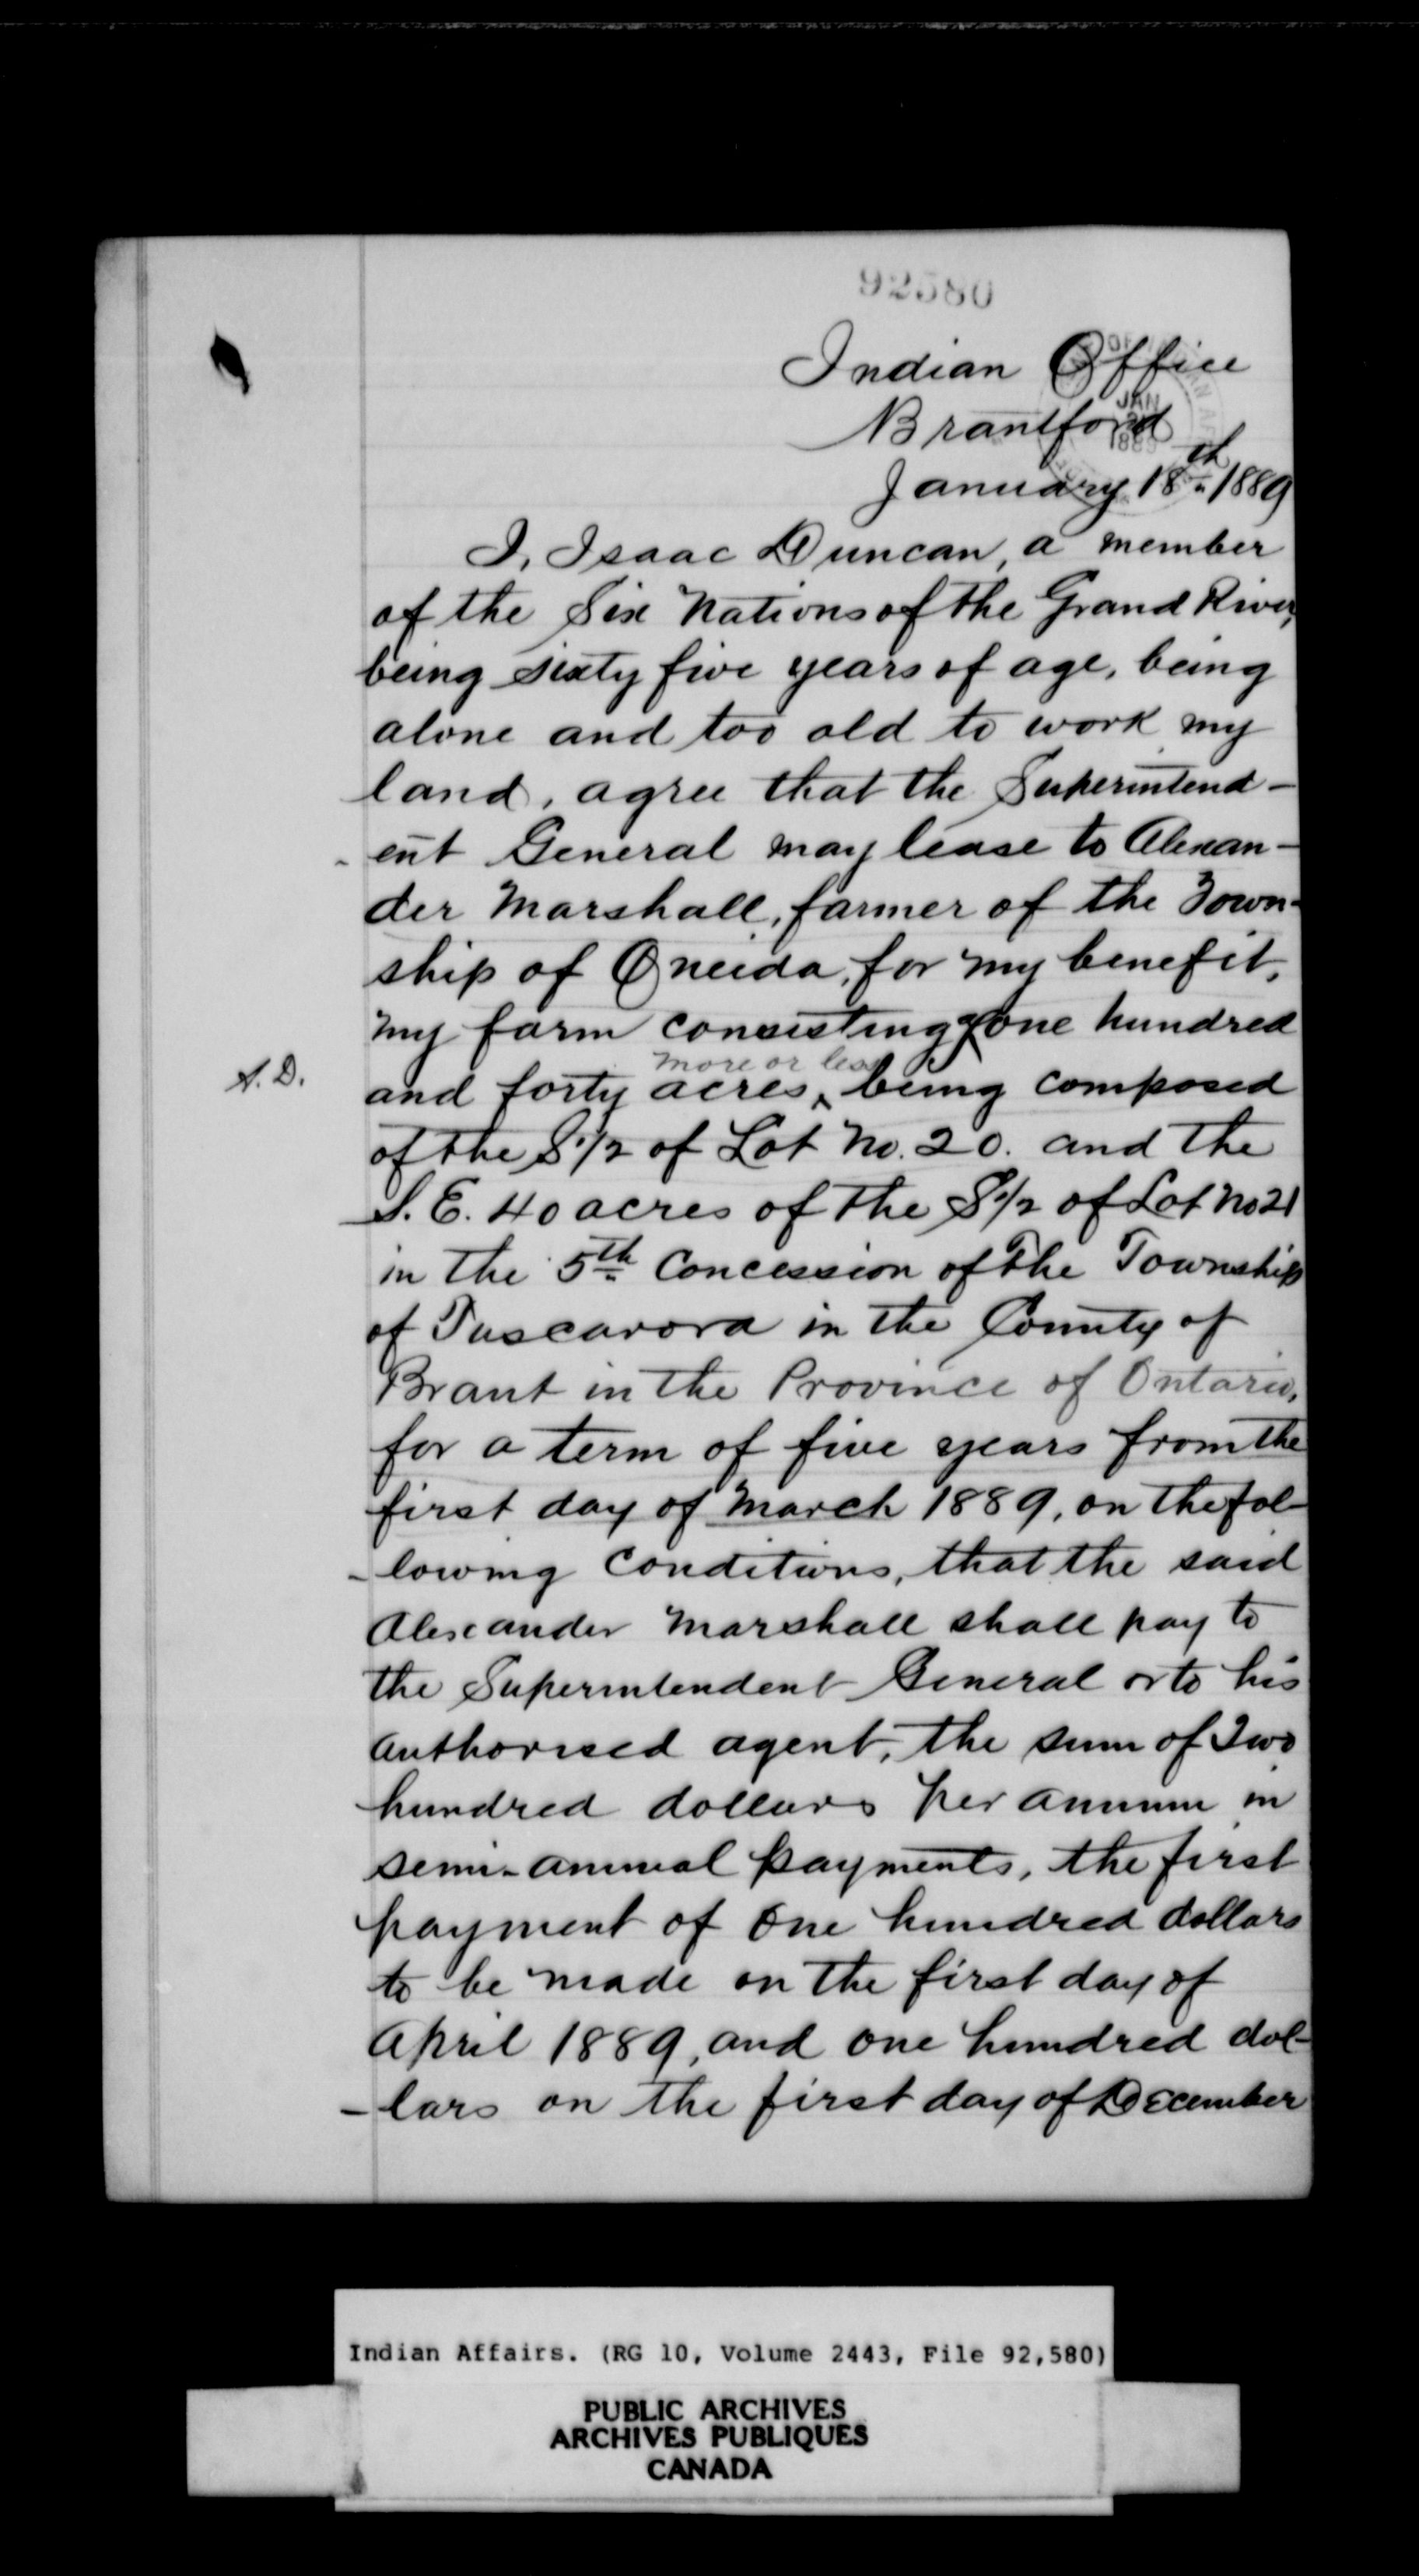 92580
Indian Office
Brantford
JAN
1889
January 18th 1889
I, Isaac Duncan, a member
of the Six Nations of the Grand River,
being sixty five years of age, being
alone and too old to work my
land, agree that the Superintend-
-ent General may lease to Alexan-
der Marshall, farmer of the Town-
ship of Oneida, for my benefit,
my farm consisting of one hundred
more or less
A.D.
and forty acres, being composed
of the S 1/2 of Lot No. 20. and the
S. E. 40 acres of the S 1/2 of Lot No 21
in the 5th Concession of the Township
of Tuscarora in the County of
Brant in the Province of Ontario,
for a term of five years from the
first day of March 1889, on the fol-
-lowing conditions, that the said
Alexander Marshall shall pay to
the Superintendent General or to his
authorised agent, the sum of Two
hundred dollars per annum in
semi-annual payments, the first
payment of One hundred dollars
to be made on the first day of
April 1889, and one hundred dol-
-lars on the first day of December
Indian Affairs. (RG 10, Volume 2443, File 92,580)
PUBLIC ARCHIVES
ARCHIVES PUBLIQUES
CANADA